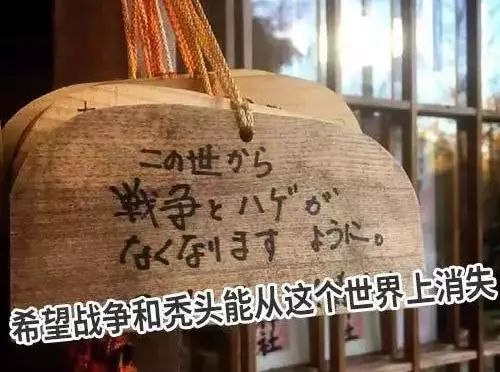 この世から
戦争とハゲが
なくなります ように。
希望战争和秃头能从这个世界上消失
神社